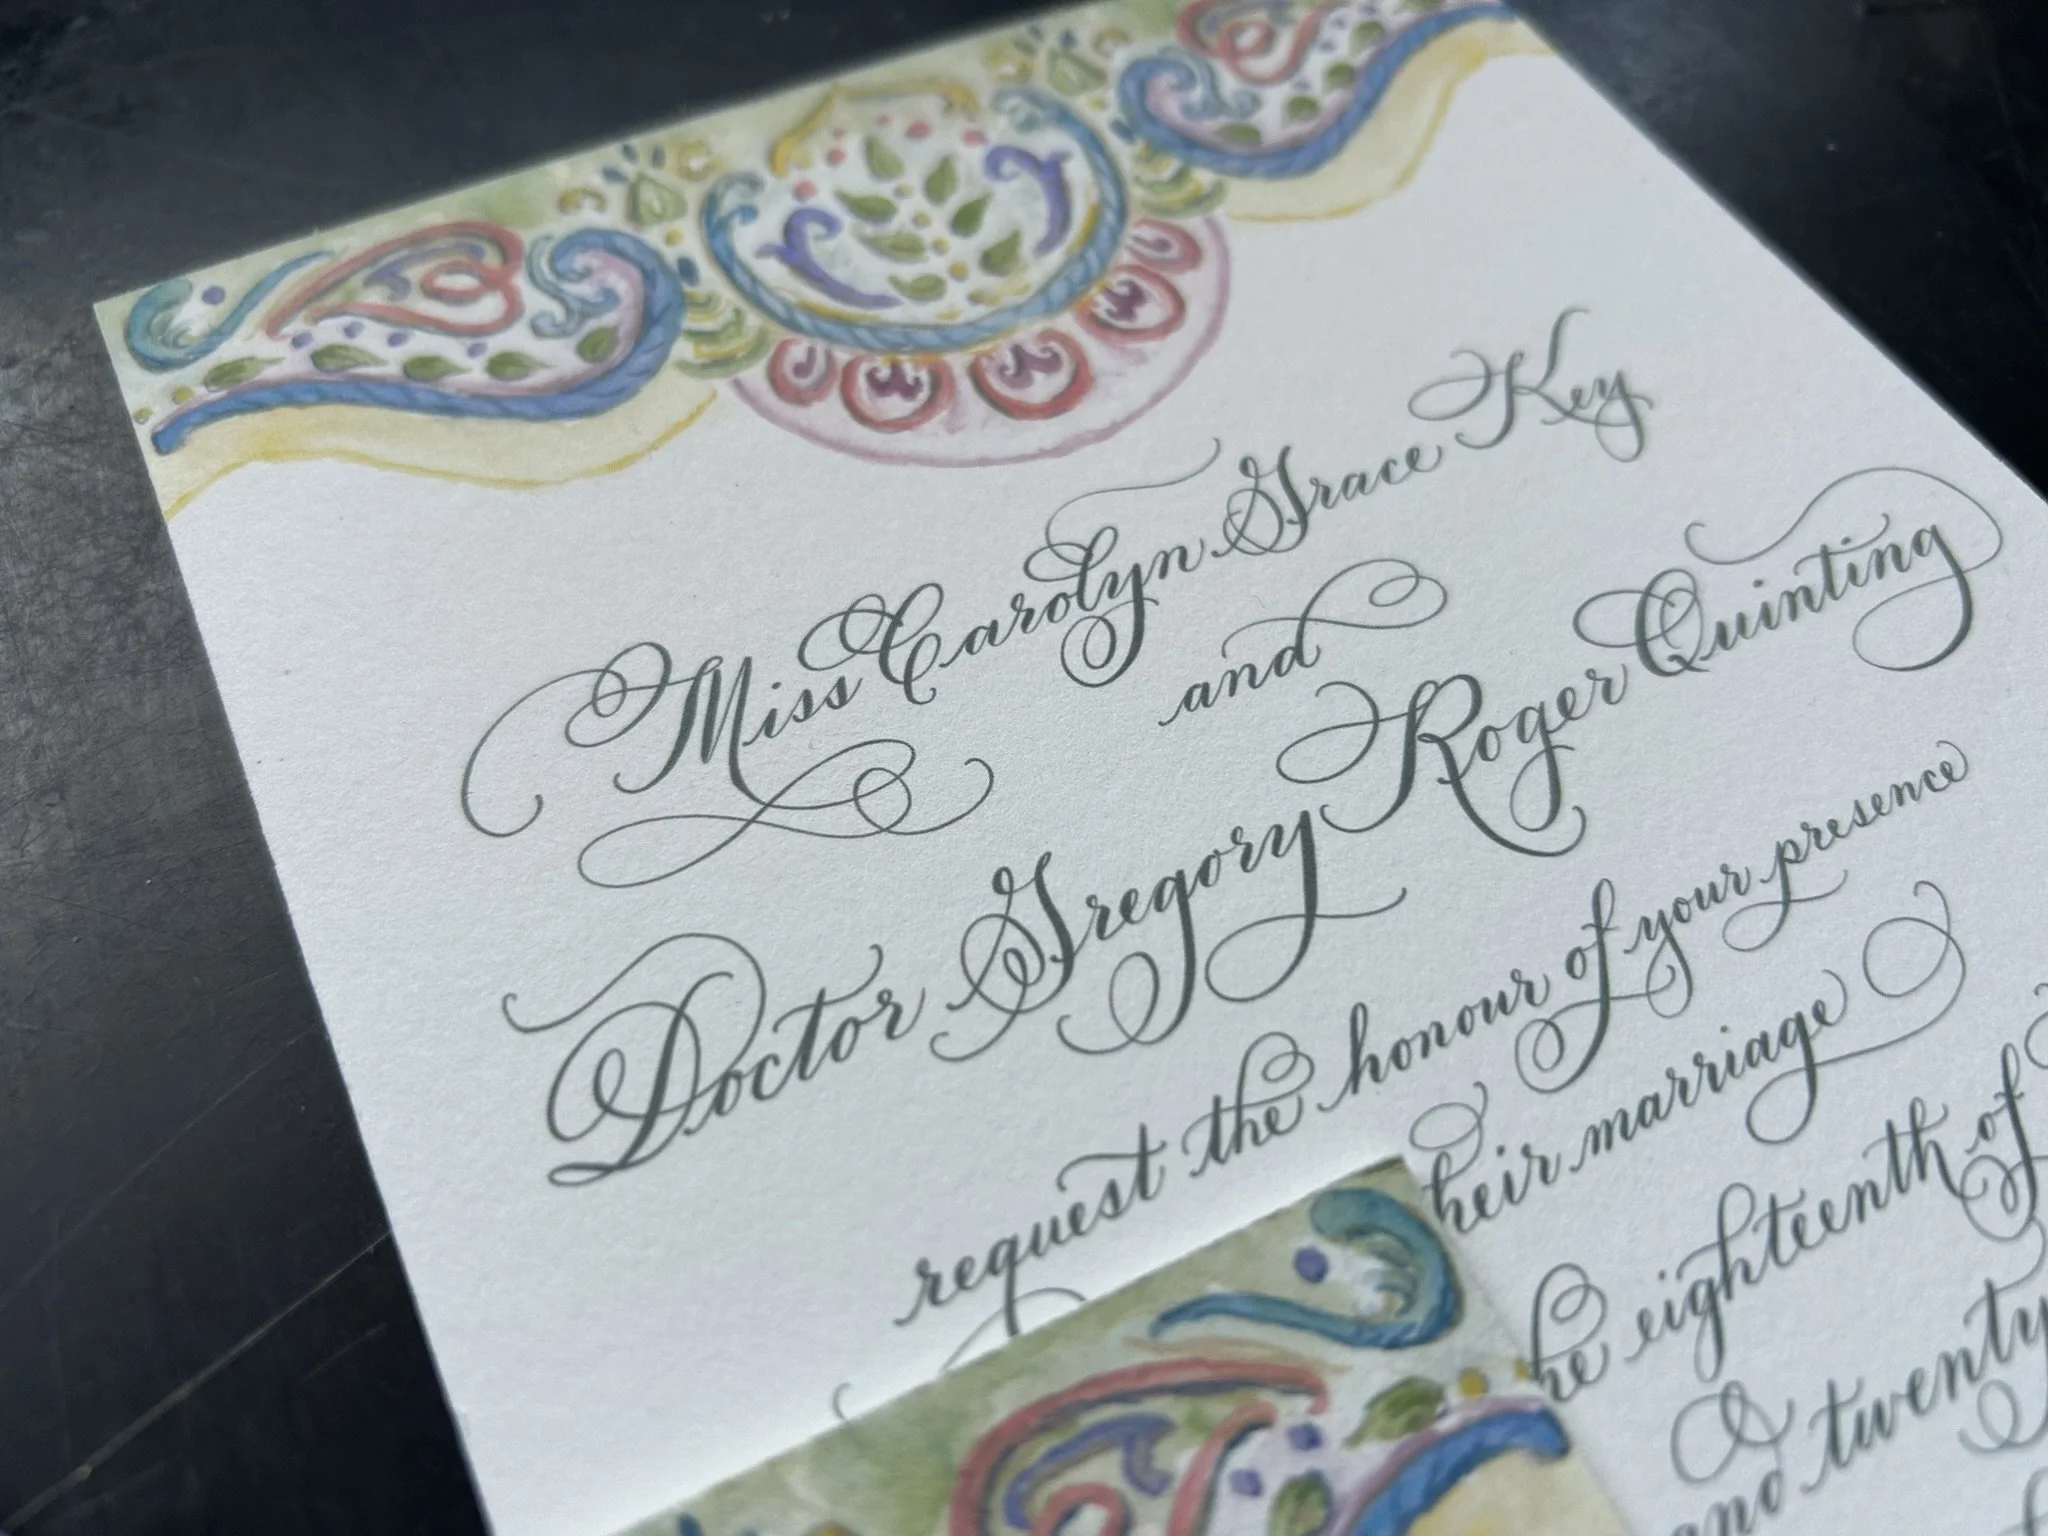 Miss Carolyn Grace Key
and
Doctor Gregory Roger Quinting
request the honour of your presence
heir marriage
he eighteenth of
and twenty